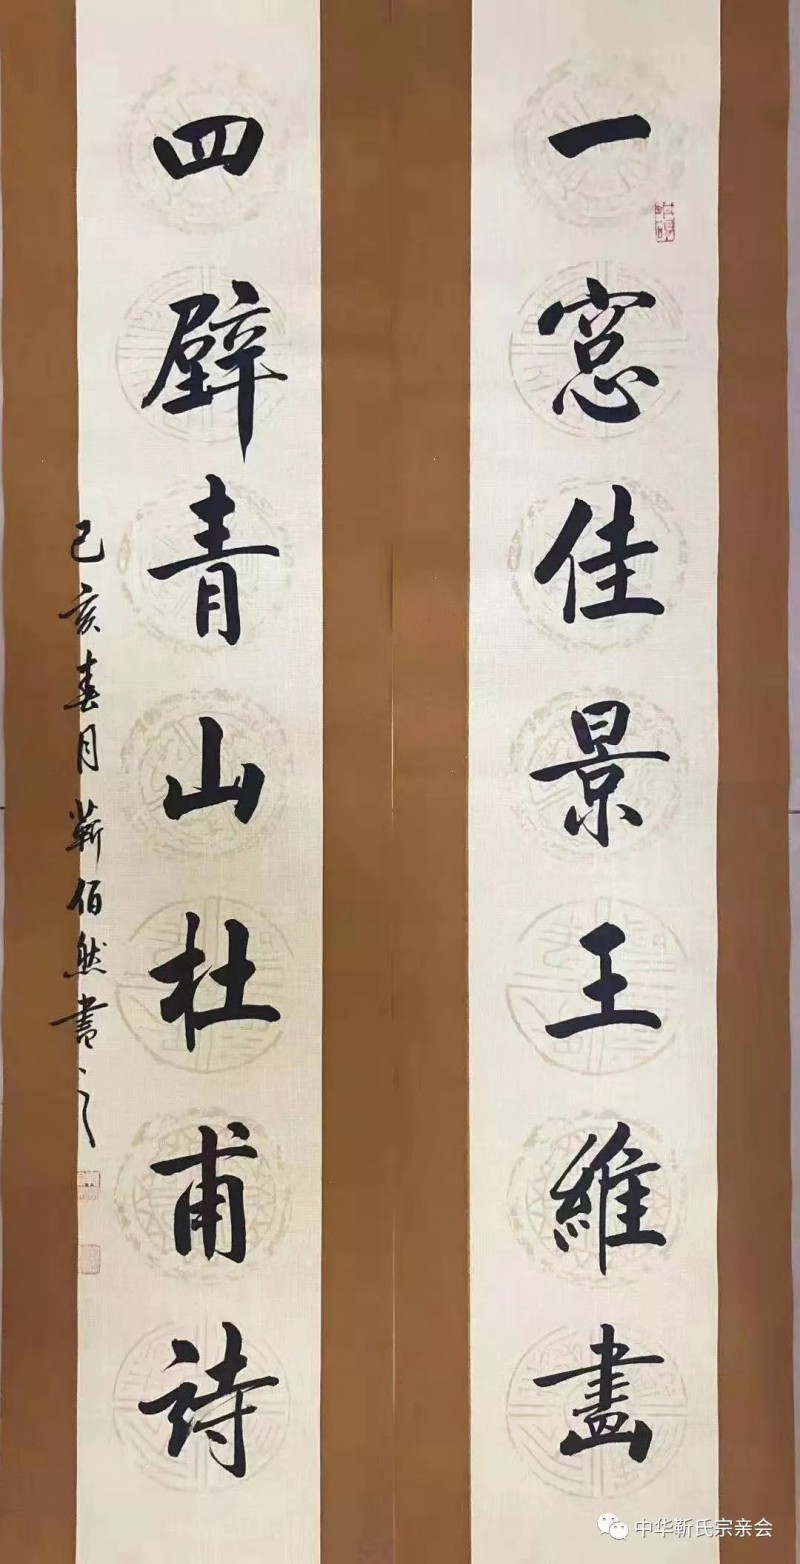 一窓佳景王維畫
四壁青山杜甫詩
己亥春月蘄佰然書
中华靳氏宗亲会